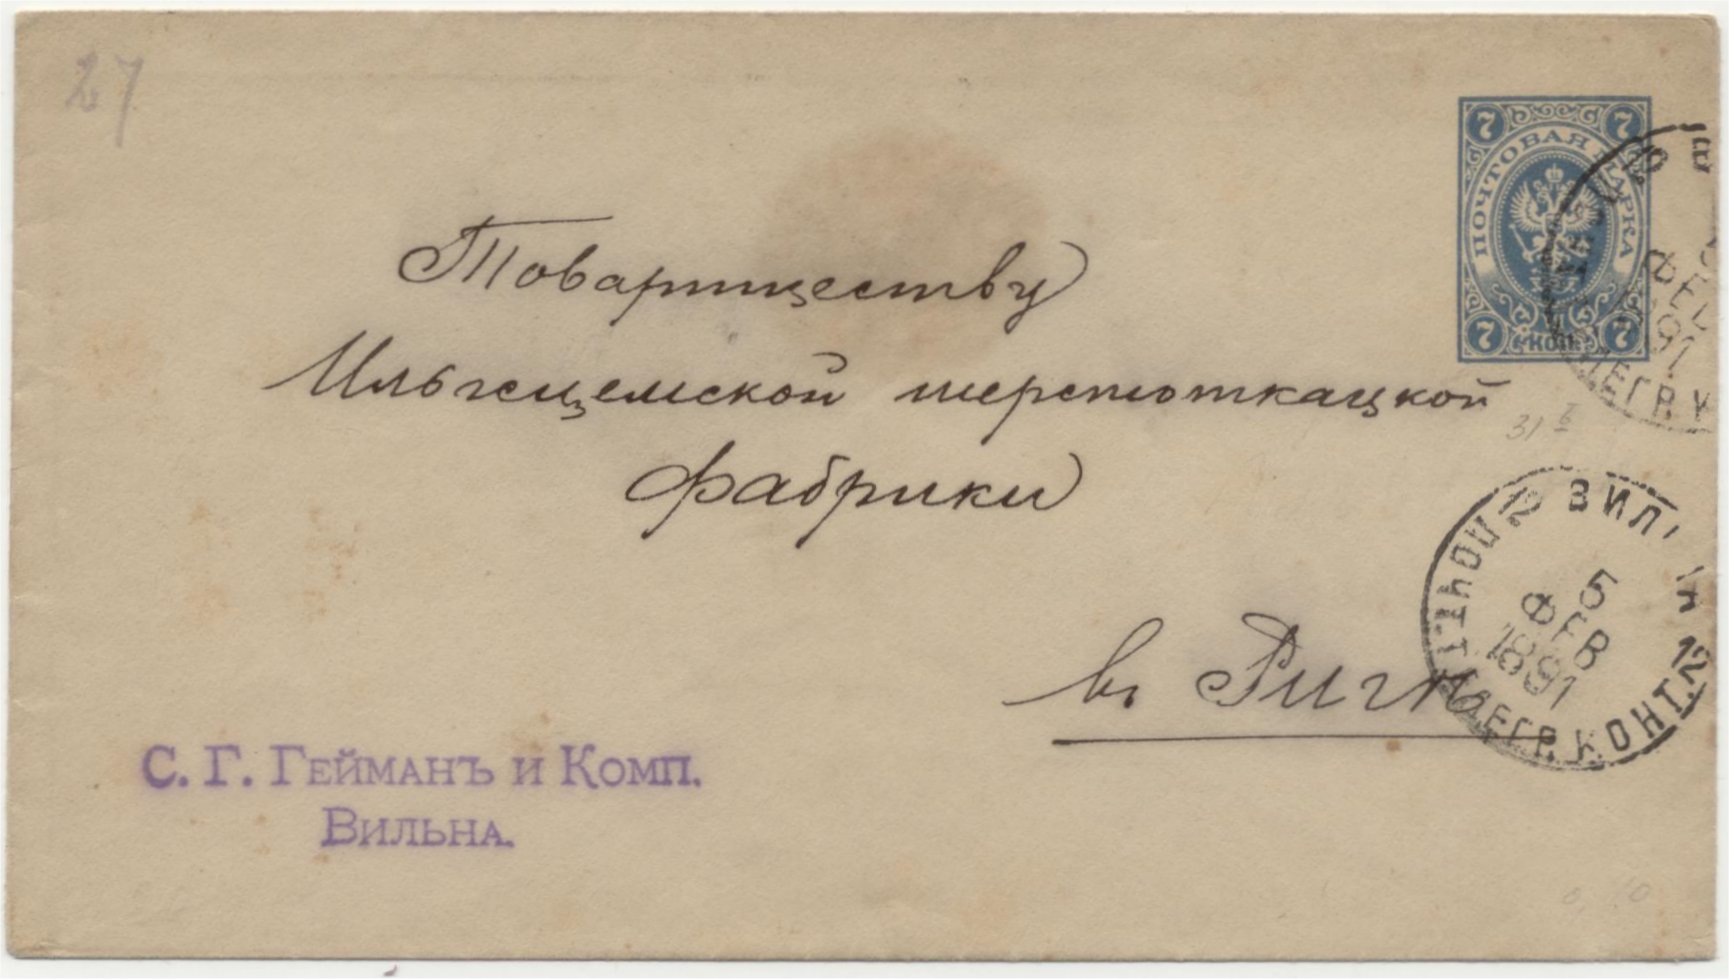 27
7 7
ПОЧТОВАЯ МАРКА
7 КОП. 7
ФЕВ
1891
ТЕЛЕГР. К
Товариществу
Ильгецемской шерстоткацкой
фабрики
въ Ригѣ
31
12 ВИЛЬНА 12
5
ФЕВ
1891
ПОЧТ. ТЕЛЕГР. КОНТ.
С. Г. Гейманъ и Комп.
Вильна.